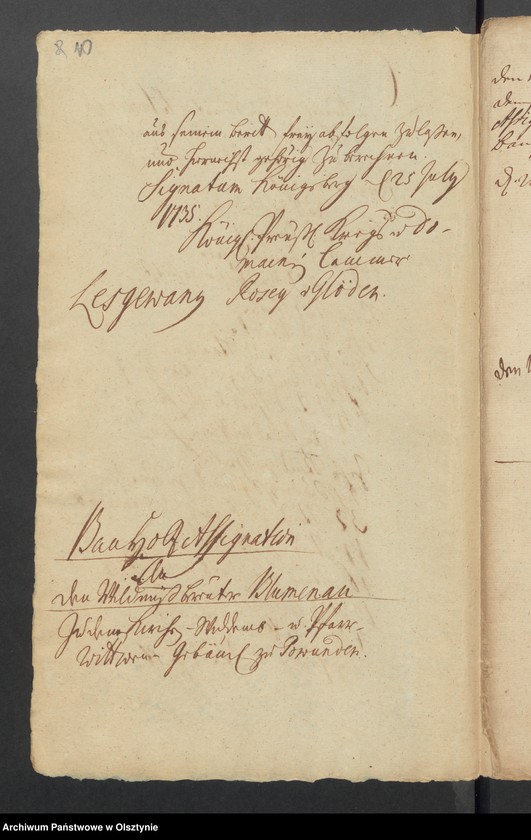 8
aus seinem beritt frey abfolgen zu laßen,
und hernechst gehörig zu berechnen
Signatum Königsberg d 25 July
1735.
Königl. Preuß. Kriegs u Do-
mainen Cammer
Lesgewang Rosey vGloden.
Bau Holtz Assignation
An
den Wildnüßbereuter Blumenau
Zu denen Kirchen - Widdems - u. Pfarr-
Wittwen Gebäud zu Powunden.
den
den
Archiwum Państwowe w Olsztynie